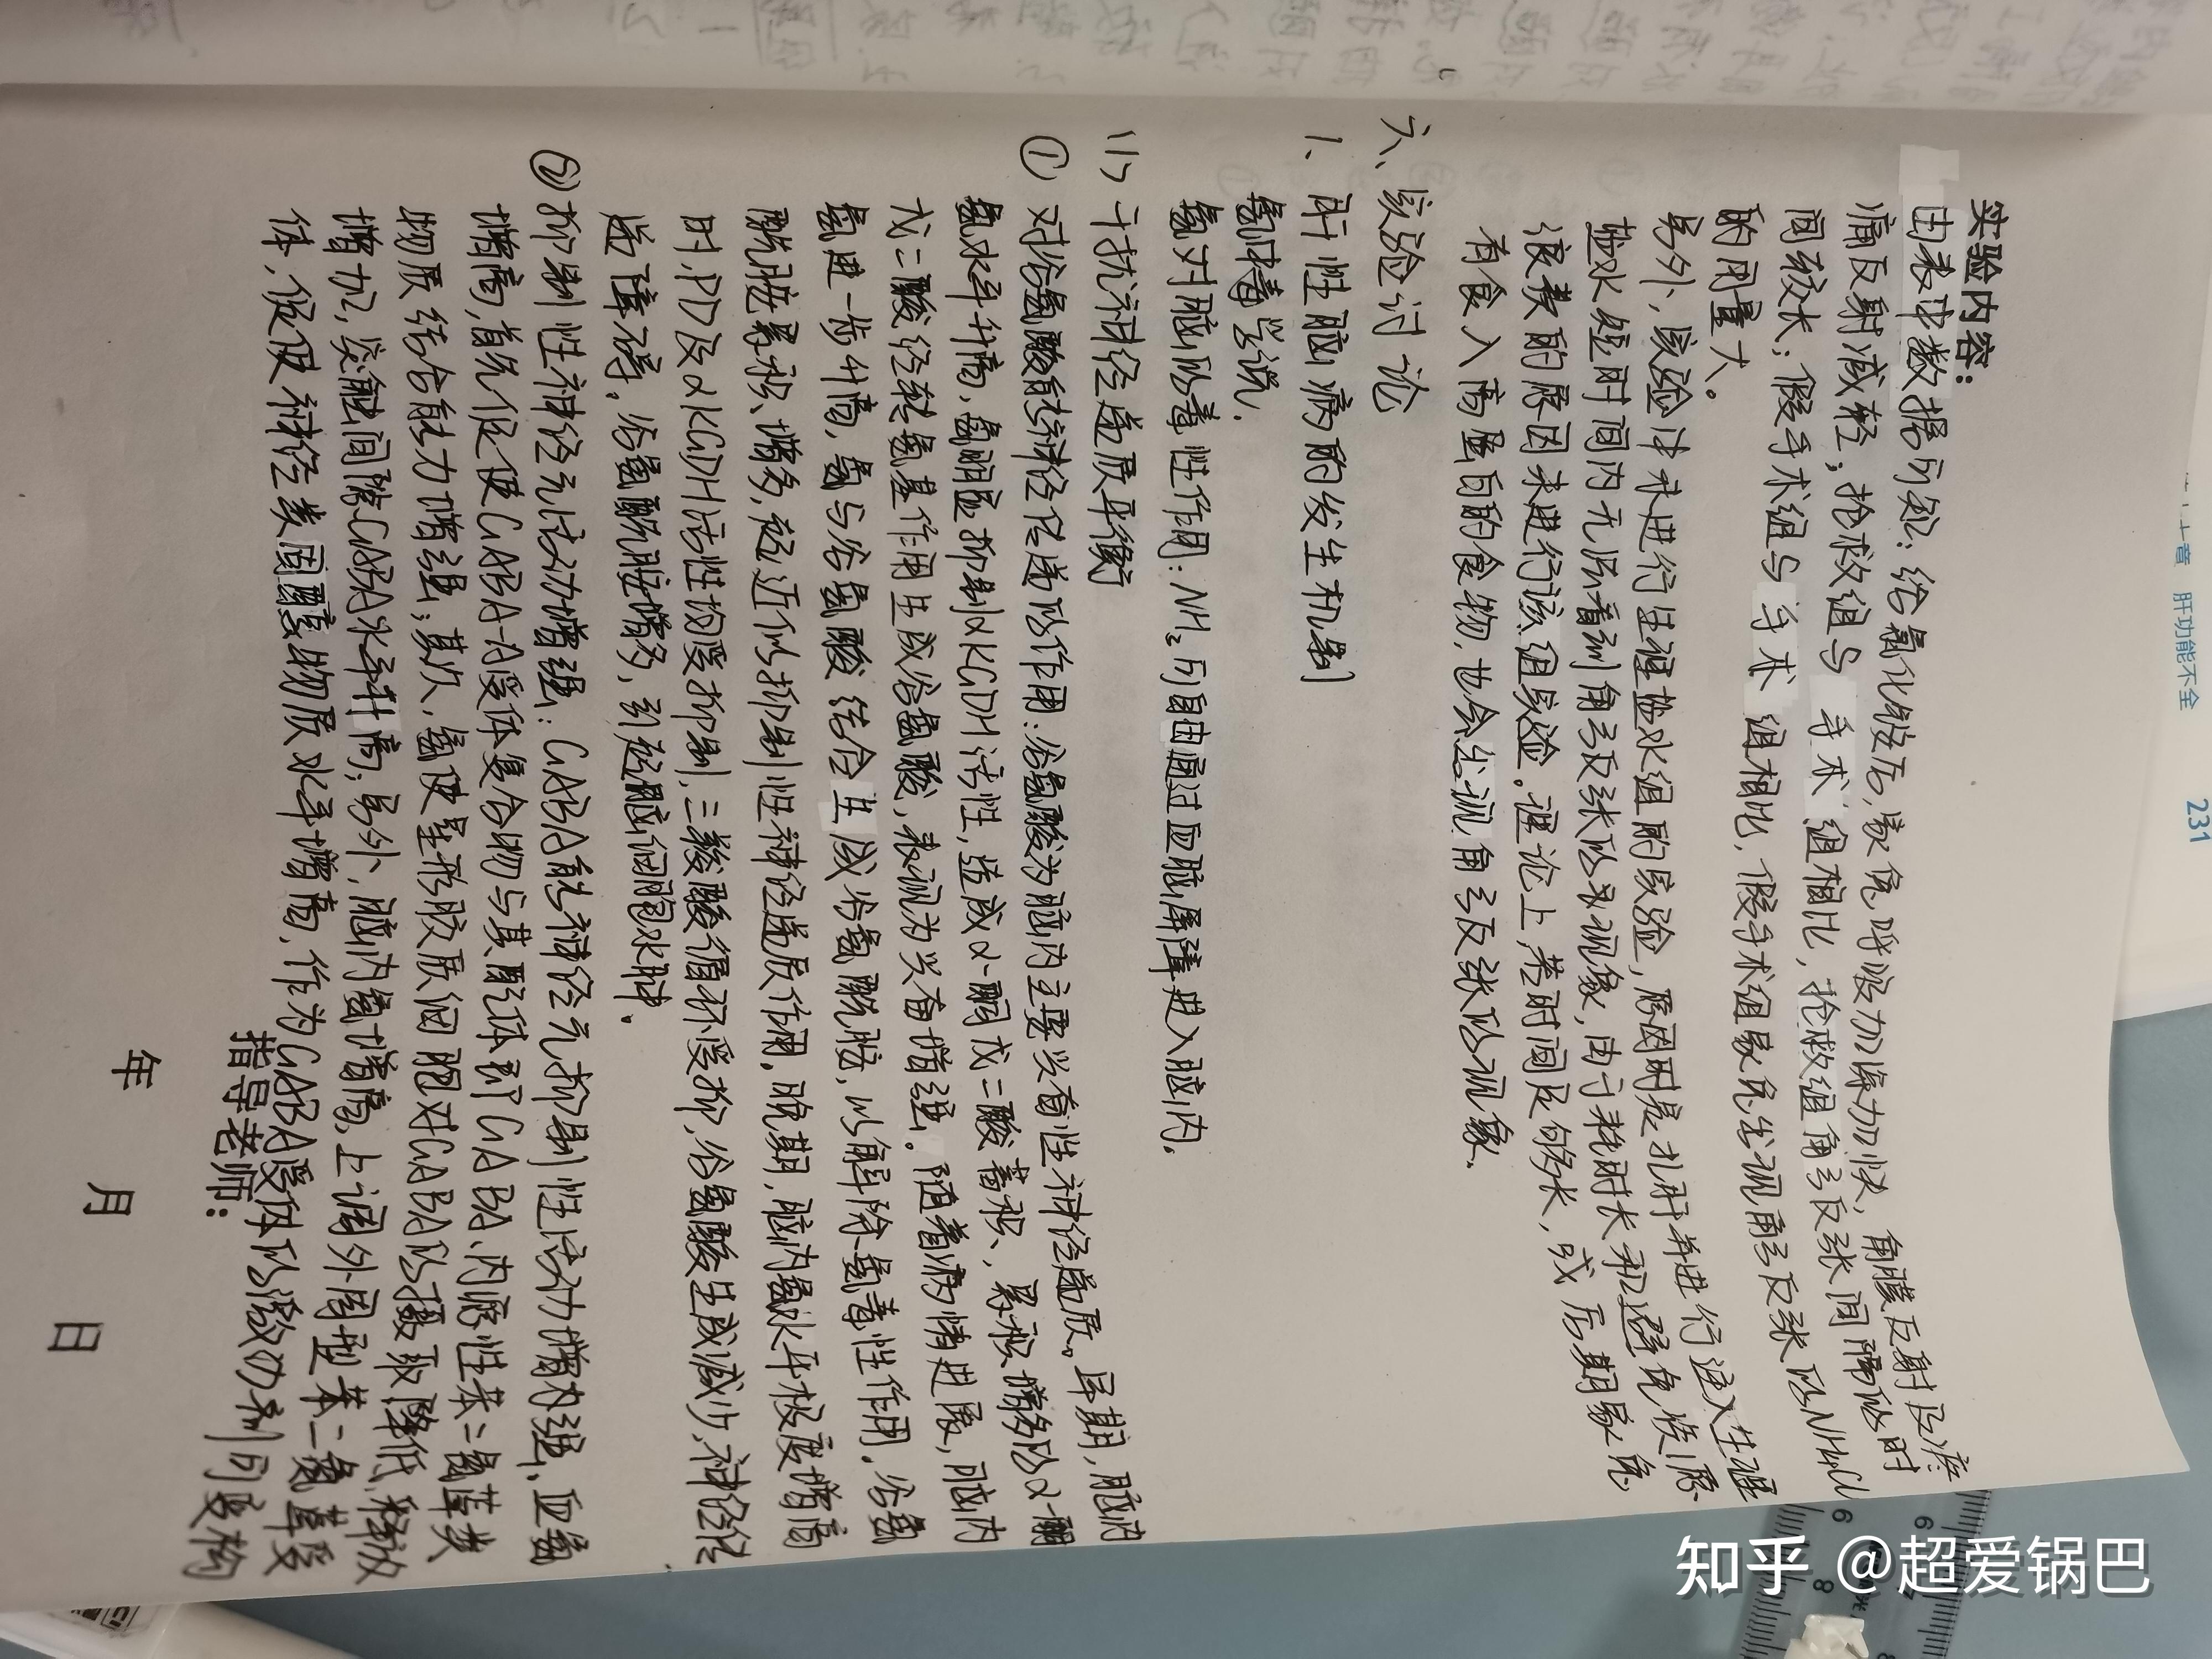 实验内容:
由表中数据可知:给氯化铵后,家兔呼吸加深加快,角膜反射及疼
痛反射减轻;抢救组与手术组相比,抢救组角弓反张间隔的时
间较长;假手术组与手术组相比,假手术组家兔出现角弓反张的NH4Cl
的用量大。
另外,实验中未进行生理盐水组的实验,原因时是扎肝并进行注入生理
盐水短时间内无法看到角弓反张的现象,由于耗时长和避免资源
浪费的原因未进行该组实验。理论上,若时间足够长,或后期家兔
有食入高蛋白的食物,也会出现角弓反张的现象.
六、实验讨论
1、肝性脑病的发生机制
氨中毒学说.
氨对脑的毒性作用:NH3可自由通过血脑屏障进入脑内.
(1)干扰神经递质平衡
① 对谷氨酸能神经传递的作用:谷氨酸为脑内主要兴奋性神经递质。早期,脑内
氨水平升高,氨明显抑制αKGDH活性,造成α-酮戊二酸蓄积、累积增多的α-酮
戊二酸经转氨基作用生成谷氨酸,表现为兴奋增强。随着病情进展,脑内
氨进一步升高,氨与谷氨酸结合生成谷氨酰胺,以解除氨毒性作用.谷氨
酰胺累积、增多,起近似抑制性神经递质作用.晚期,脑内氨水平极度增高
时,PD及αKGDH活性均受抑制,三羧酸循环受抑,谷氨酸生成减少,神经传
递障碍。谷氨酰胺增多,引起脑细胞水肿。
② 抑制性神经元活动增强:GABA能神经元抑制性活动增为强.血氨
增高,首先促使GABA-A受体复合物与其配体即GABA、内源性苯二氮䓬类
物质结合能力增强;其次,氨使星形胶质细胞对GABA的摄取降低、释放
增加,突触间隙GABA水平升高;另外,脑内氨增高,上调外周型苯二氮䓬受
体,促使神经类固醇物质水平增高,作为GABA受体的激动剂可变构
指导老师:
年 月 日
章 肝功能不全 231
知乎 @超爱锅巴